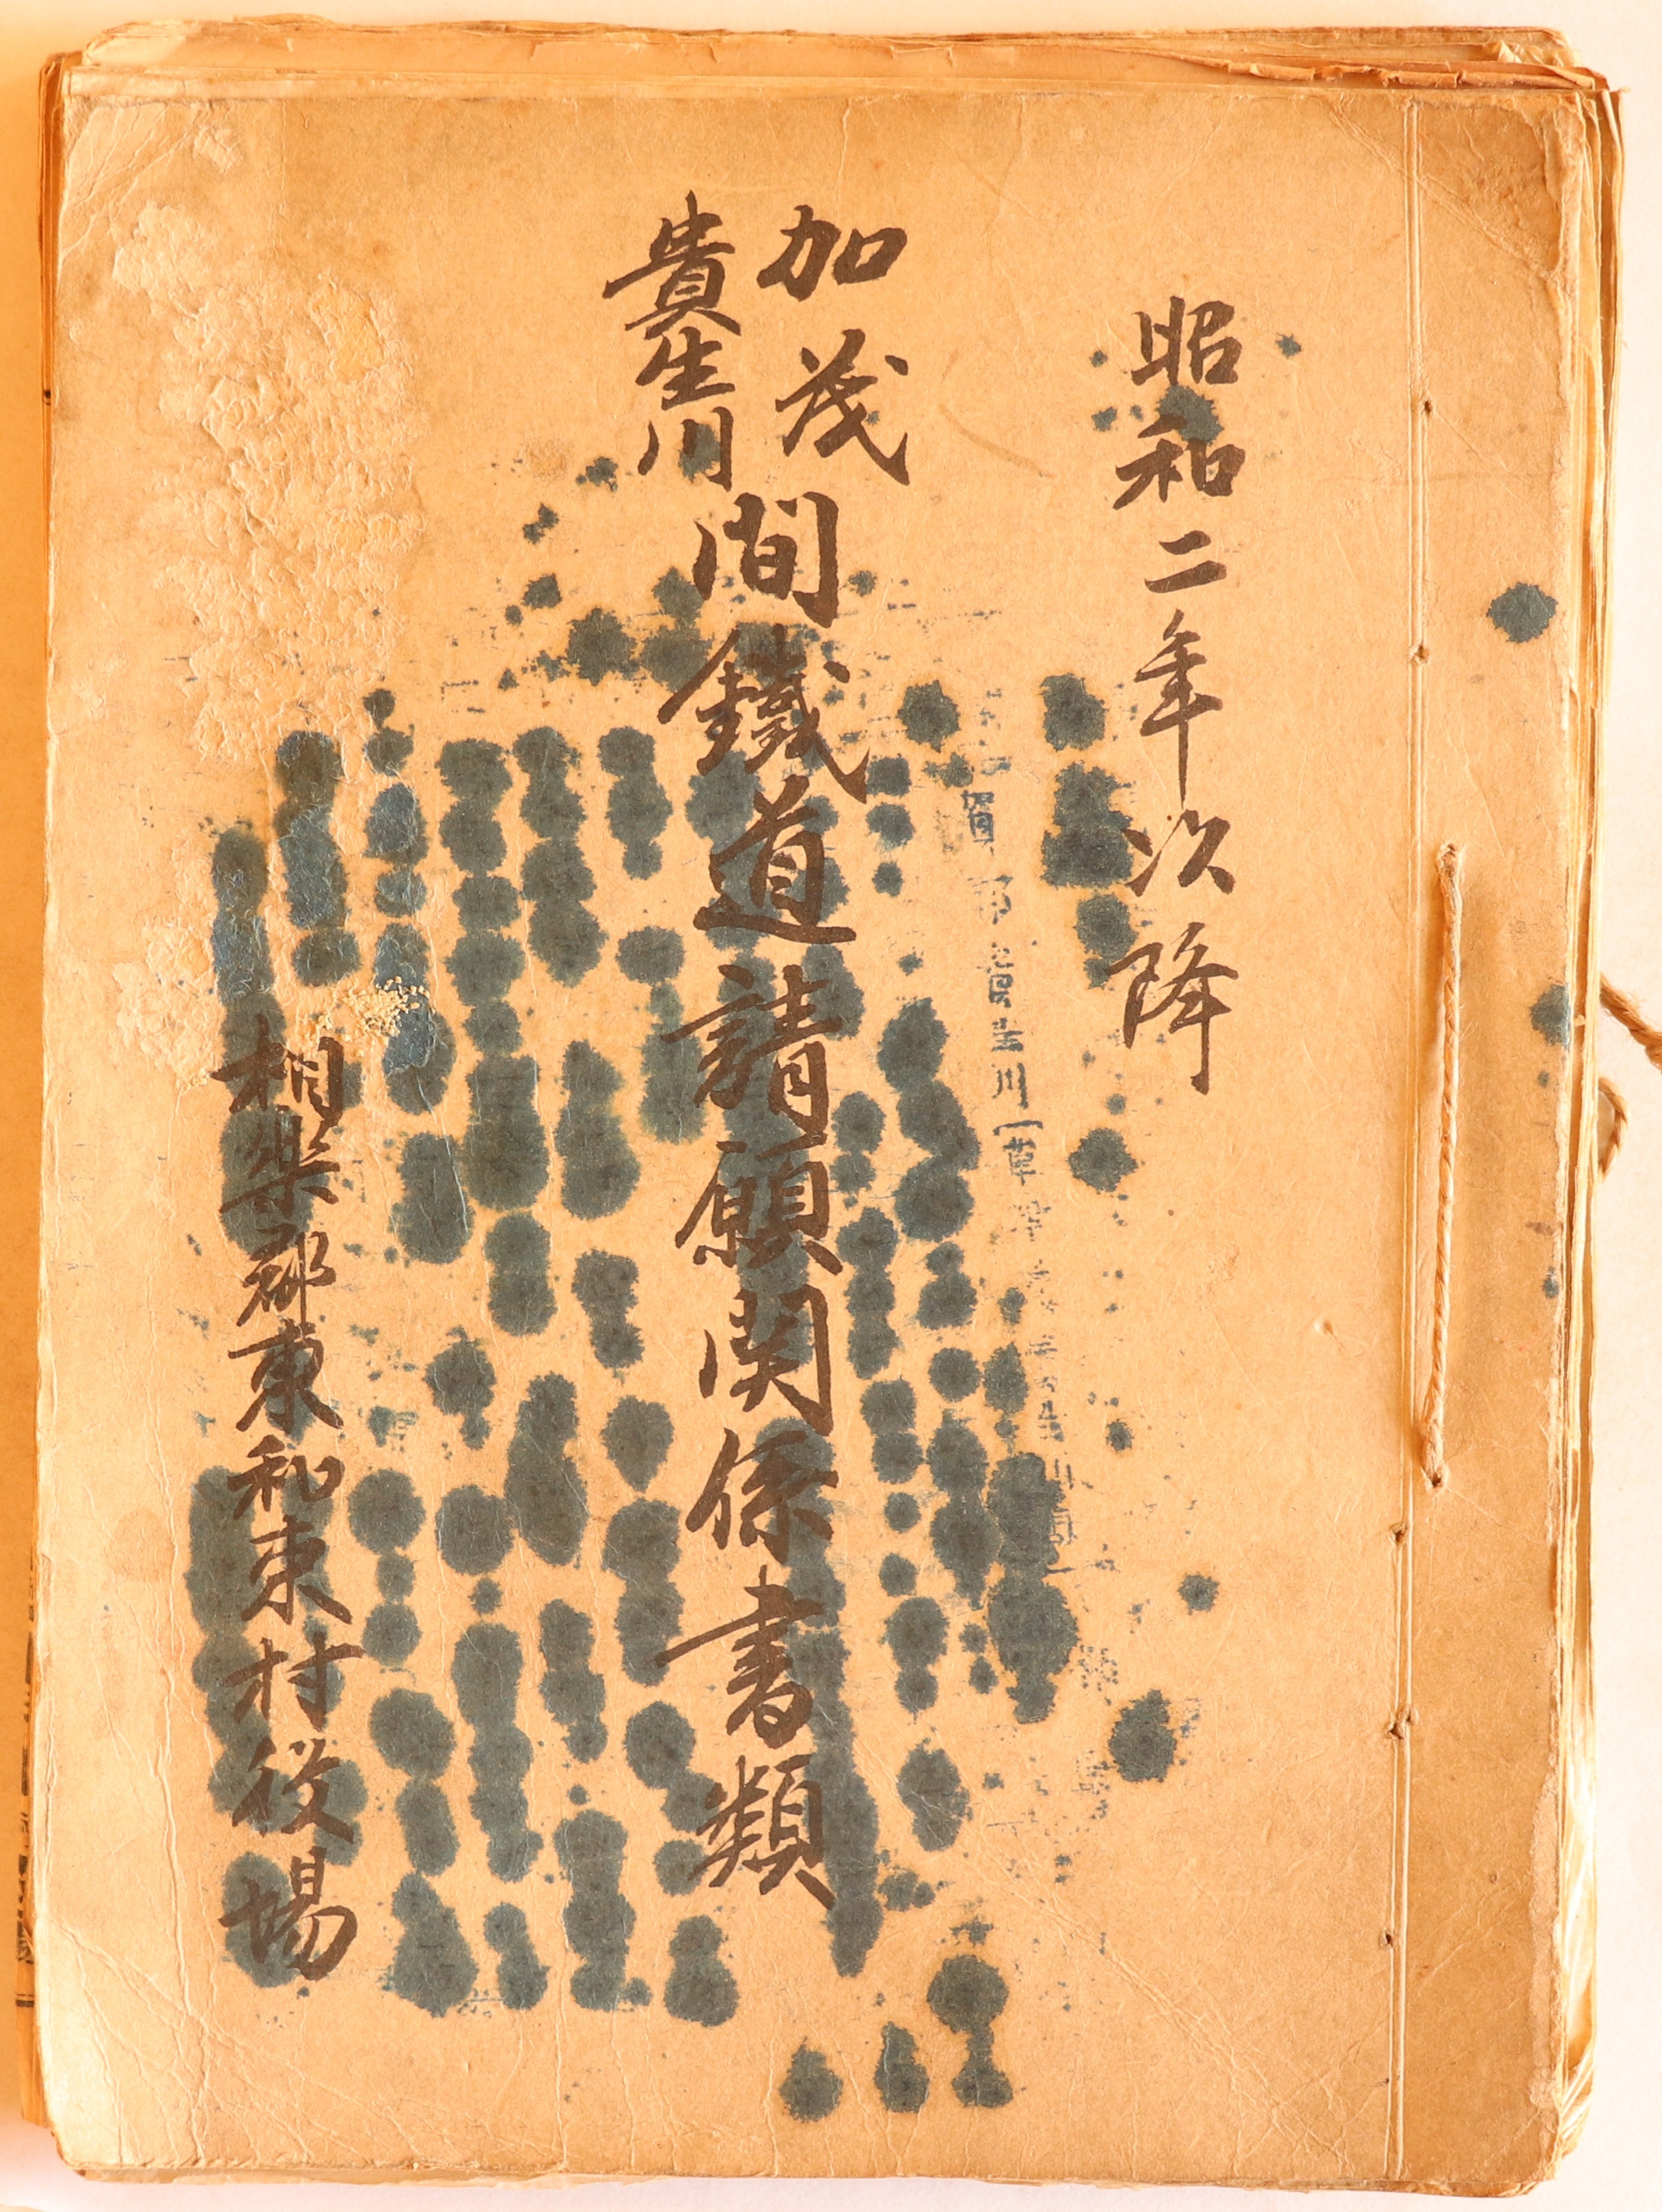 昭和二年以降
加茂
貴生川
間鐵道請願関係書類
相樂郡東和束村役場